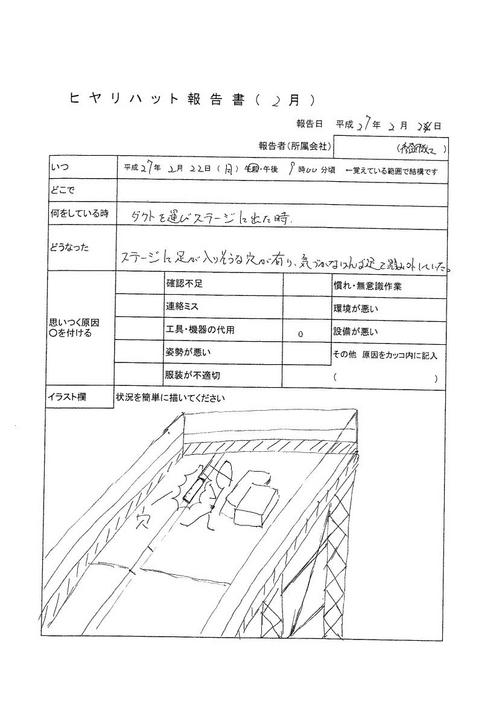 ヒヤリハット報告書( 2 月 )
報告日 平成 27 年 2 月 日
報告者(所属会社)
いつ 平成 27 年 2 月 22 日 ( 月 ) 午前・午後 9 時00分頃 ←覚えている範囲で結構です
どこで
何をしている時 ダクトを運びステージに出た時.
どうなった ステージに足が入りそうな穴が有り、気づかなければ足を踏み外していた。
思いつく原因
○を付ける
確認不足 慣れ・無意識作業
連絡ミス 環境が悪い
工具・機器の代用 ○ 設備が悪い
姿勢が悪い その他 原因をカッコ内に記入
服装が不適切 ( )
イラスト欄 状況を簡単に描いてください
穴